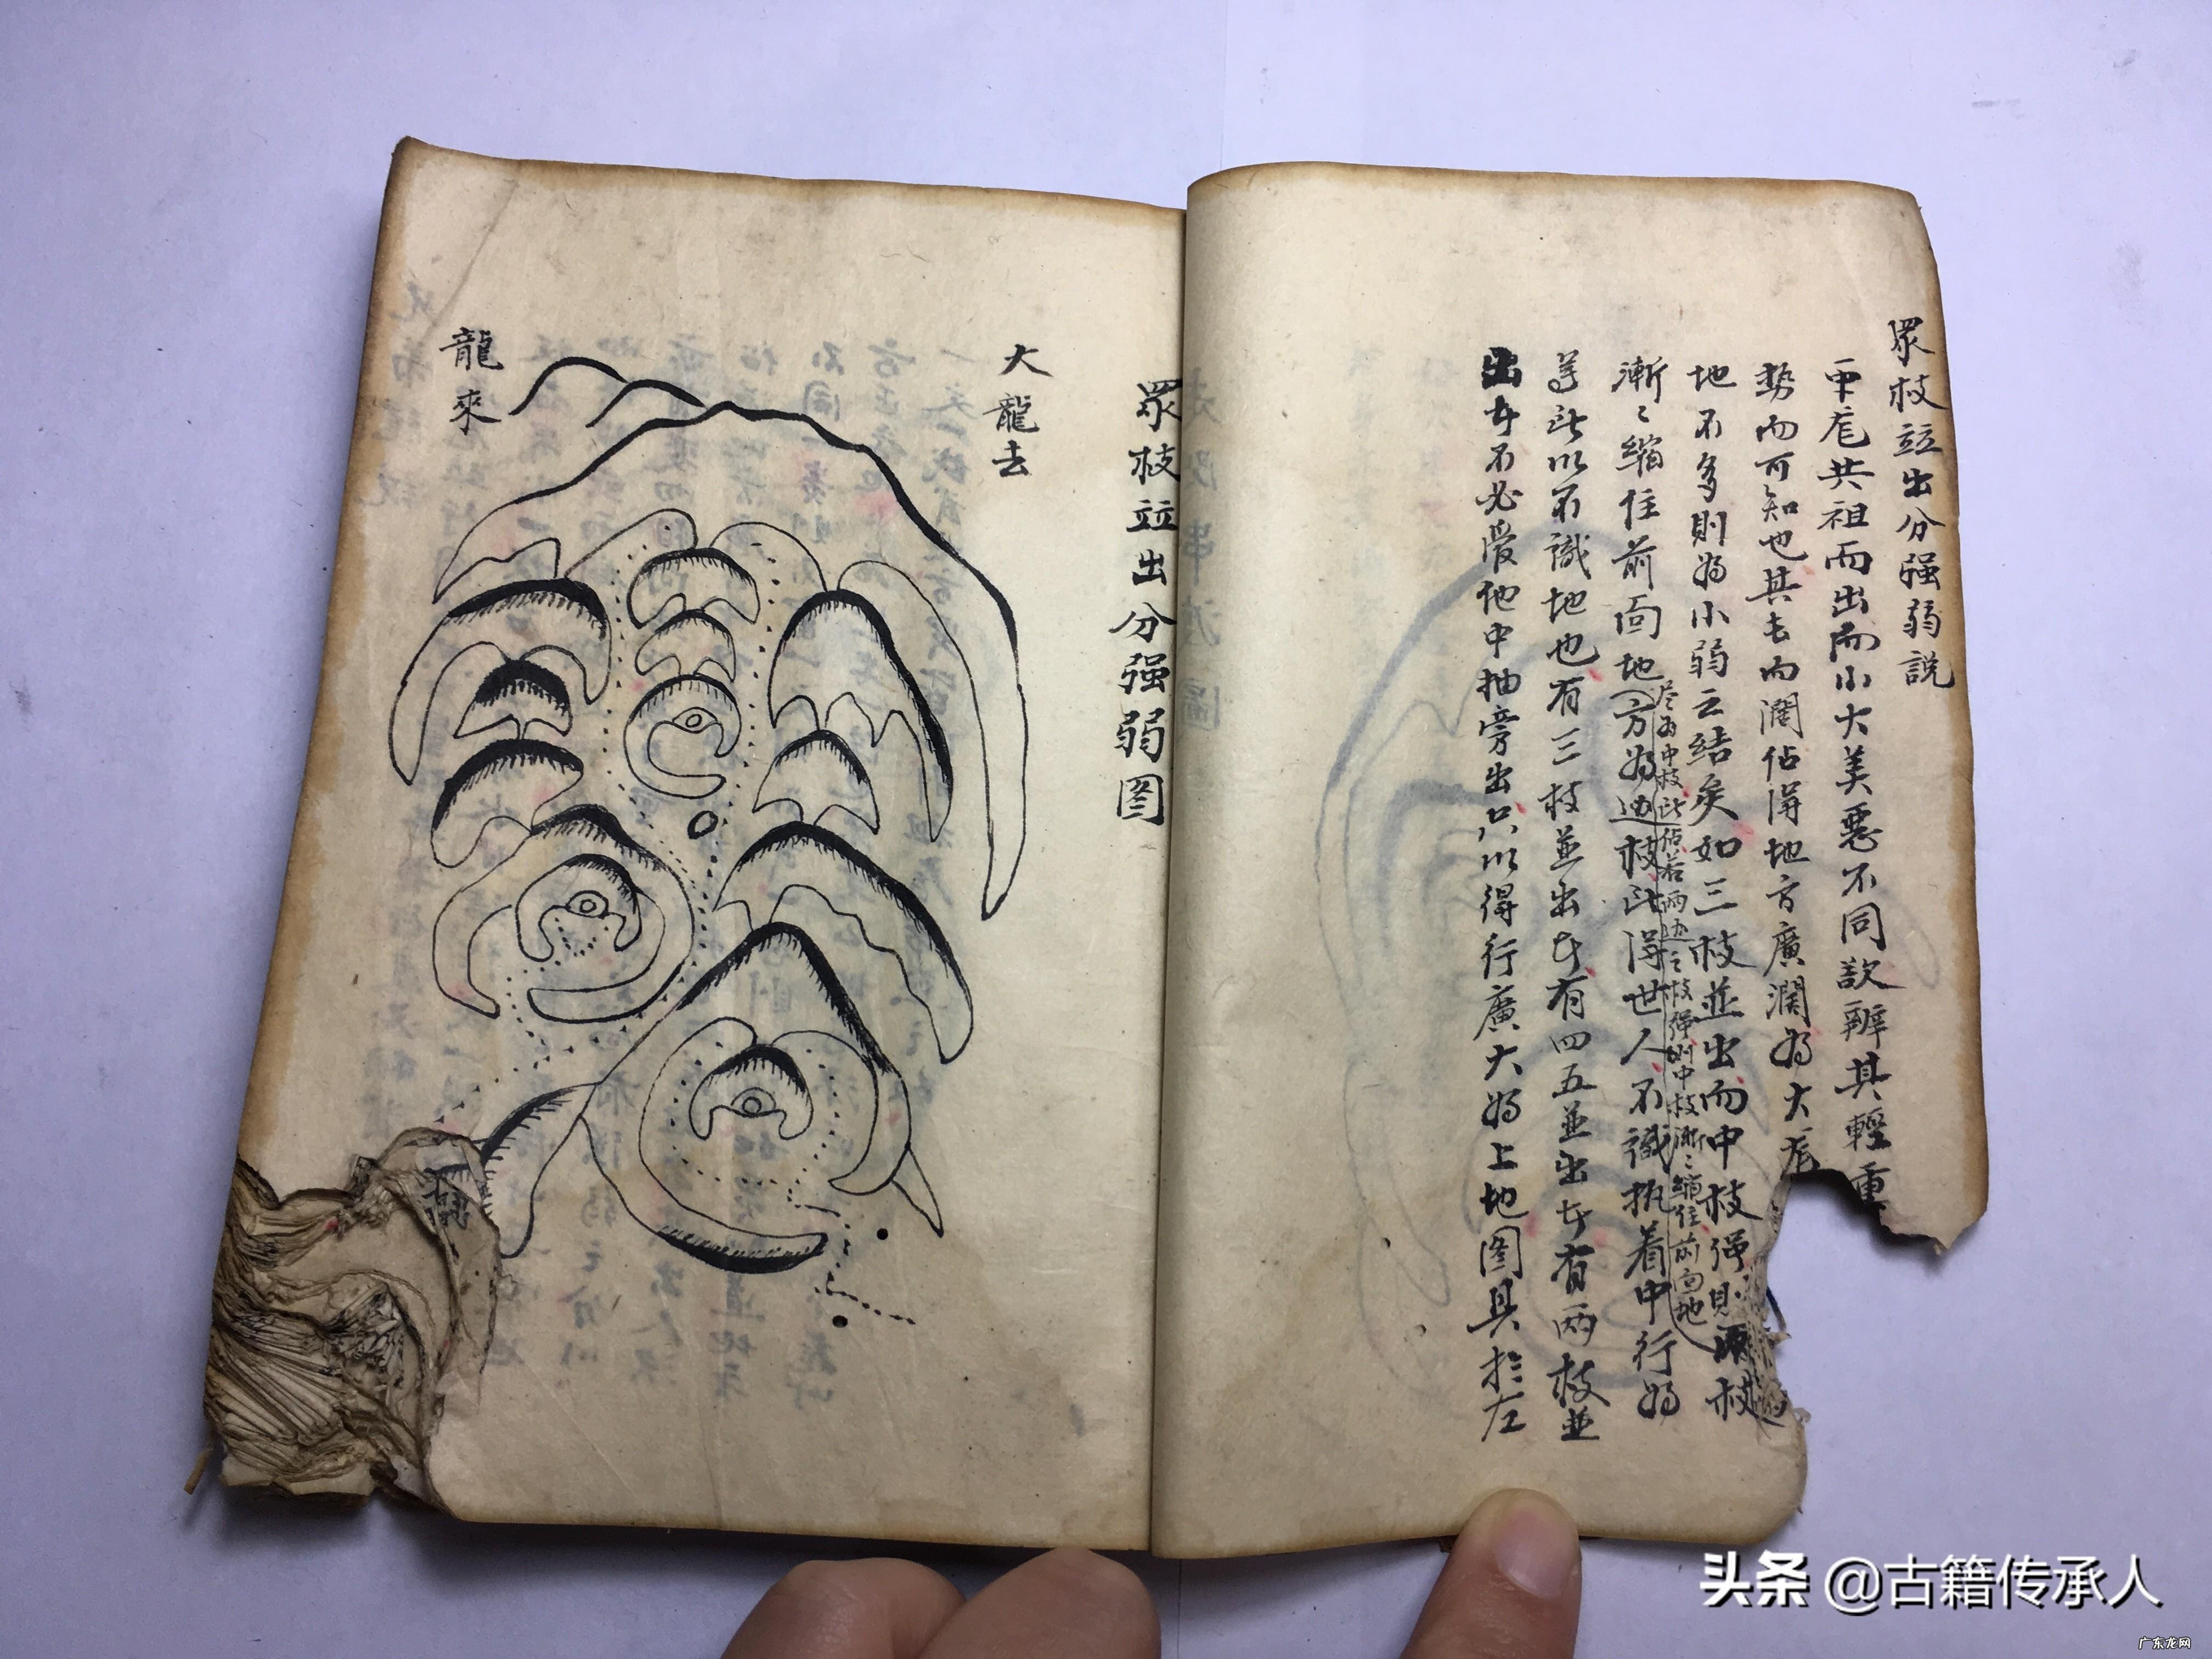 眾枝竝出分强弱説
共祖而出而小大美惡不同欲辨其輕重
勢而可知也其去向濶佔得地方廣濶為大龙
地不多則為小弱云結矣如三枝並出而中枝强則兩枝
漸〻縮住前面地
尽为中枝所佔若两边之枝强则中枝漸〻縮住前面地
方為边枝所得世人不識执着中行為
等所以不識地也有三枝並出亦有四五並出亦有两枝並
出亦不必愛他中抽旁出只以得行廣大為上地图具於左
眾枝竝出分强弱图
大龍去
龍來
头条 @古籍传承人
广东龙网